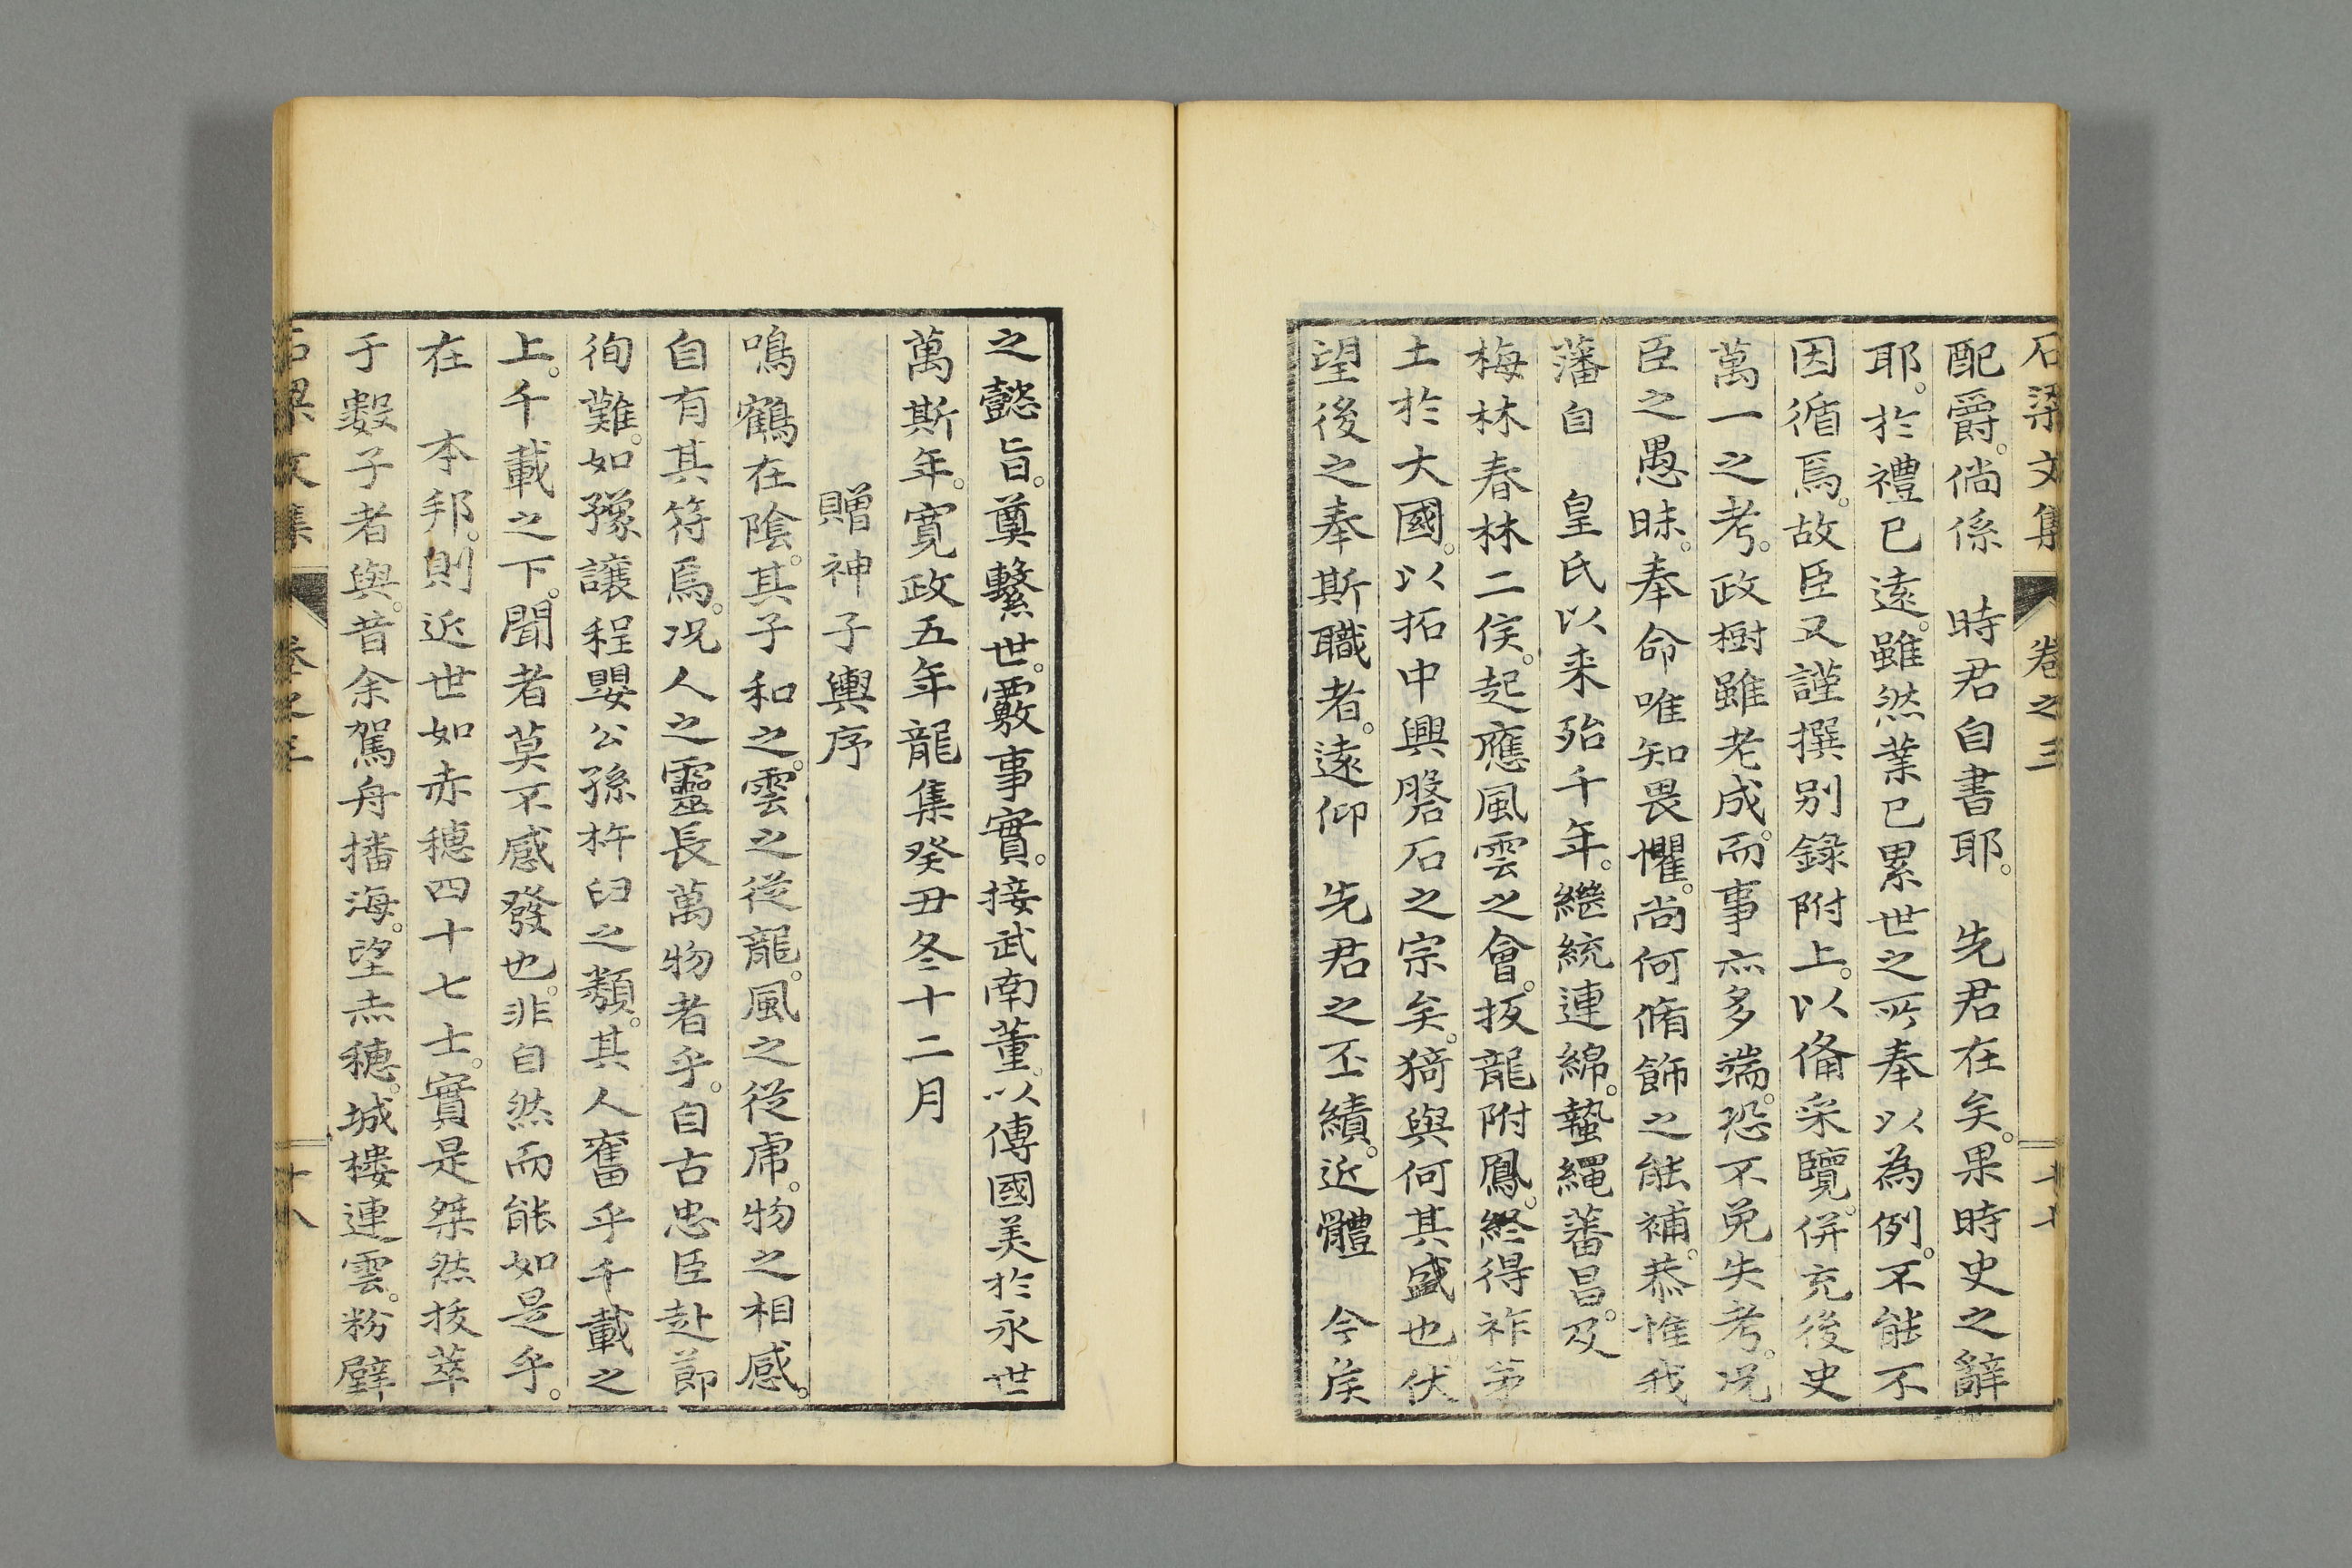 石梁文集 卷之三 十七
配爵。倘係 時君自書耶。 先君在矣。果時史之辭
耶。於禮已遠。雖然業已累世之所奉以為例。不能不
因循焉。故臣又謹撰別錄附上。以俻采覽。併充後史
萬一之考。政樹雖老成。而事亦多端。恐不免失考。况
臣之愚昧。奉命唯知畏懼。尚何脩飾之能補。恭惟我
藩自 皇氏以来殆千年。繼統連綿。蟄繩蕃昌。及
梅林春林二侯。起應風雲之會。扳龍附鳳。終得祚茅
土於大國。以拓中興磐石之宗矣。猗與何其盛也伏
望後之奉斯職者。遠仰 先君之丕績。近體 今侯
之懿旨。奠繫世。覈事實。接武南董。以傳國美於永世
萬斯年。寛政五年龍集癸丑冬十二月
贈神子輿序
鳴鶴在陰。其子和之。雲之從龍。風之從虎。物之相感。
自有其符焉。况人之靈長萬物者乎。自古忠臣赴節
徇難。如豫讓程嬰公孫杵臼之類。其人奮乎千載之
上。千載之下。聞者莫不感發也。非自然而能如是乎。
在 本邦。則近世如赤穗四十七士。實是桀然拔萃
于數子者與。昔余駕舟播海。望赤穗。城樓連雲。粉壁
石梁文集 卷之三 十八